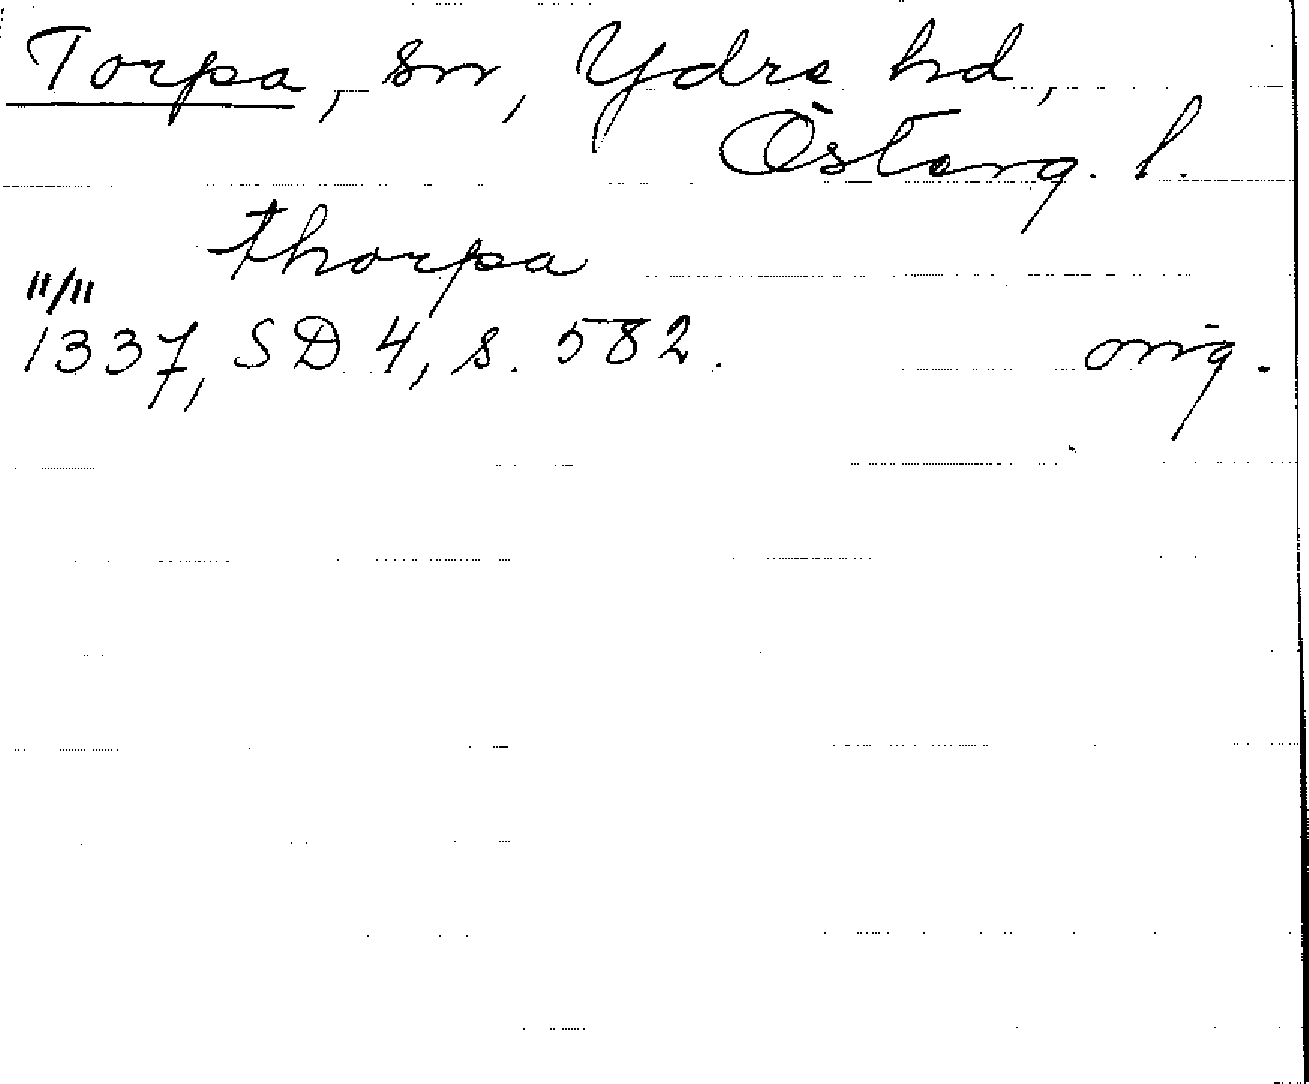 Torpa, sn, Ydre hd,
Österg. l.
thorpa
11/11
1337, SD 4, s. 582. orig.